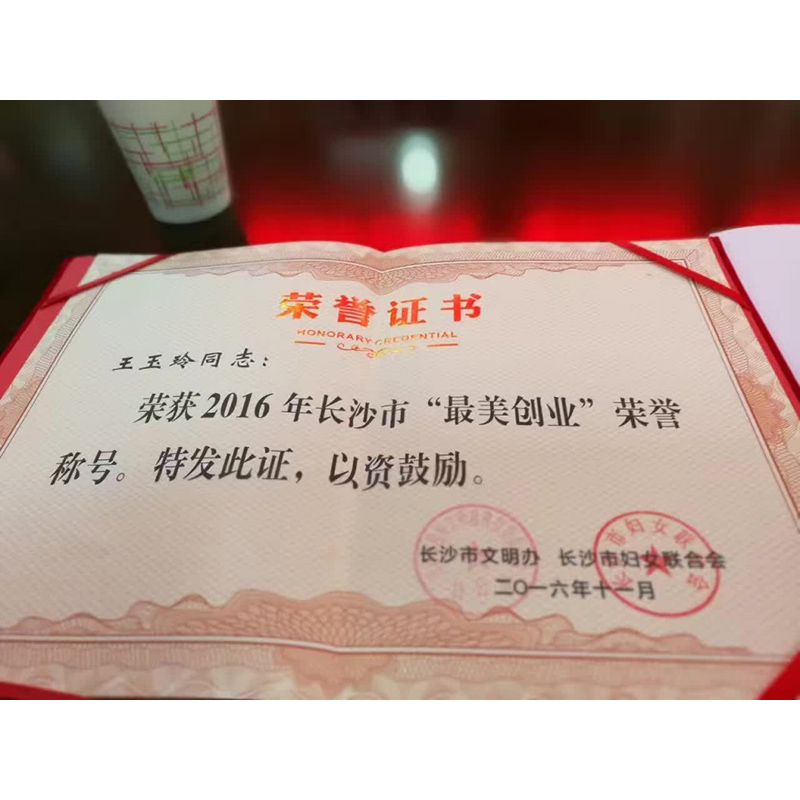 荣誉证书
HONORARY CREDENTIAL
王玉玲同志：
荣获2016年长沙市“最美创业”荣誉
称号。特发此证，以资鼓励。
长沙市文明办 长沙市妇女联合会
二〇一六年十一月
长沙市妇女联合会